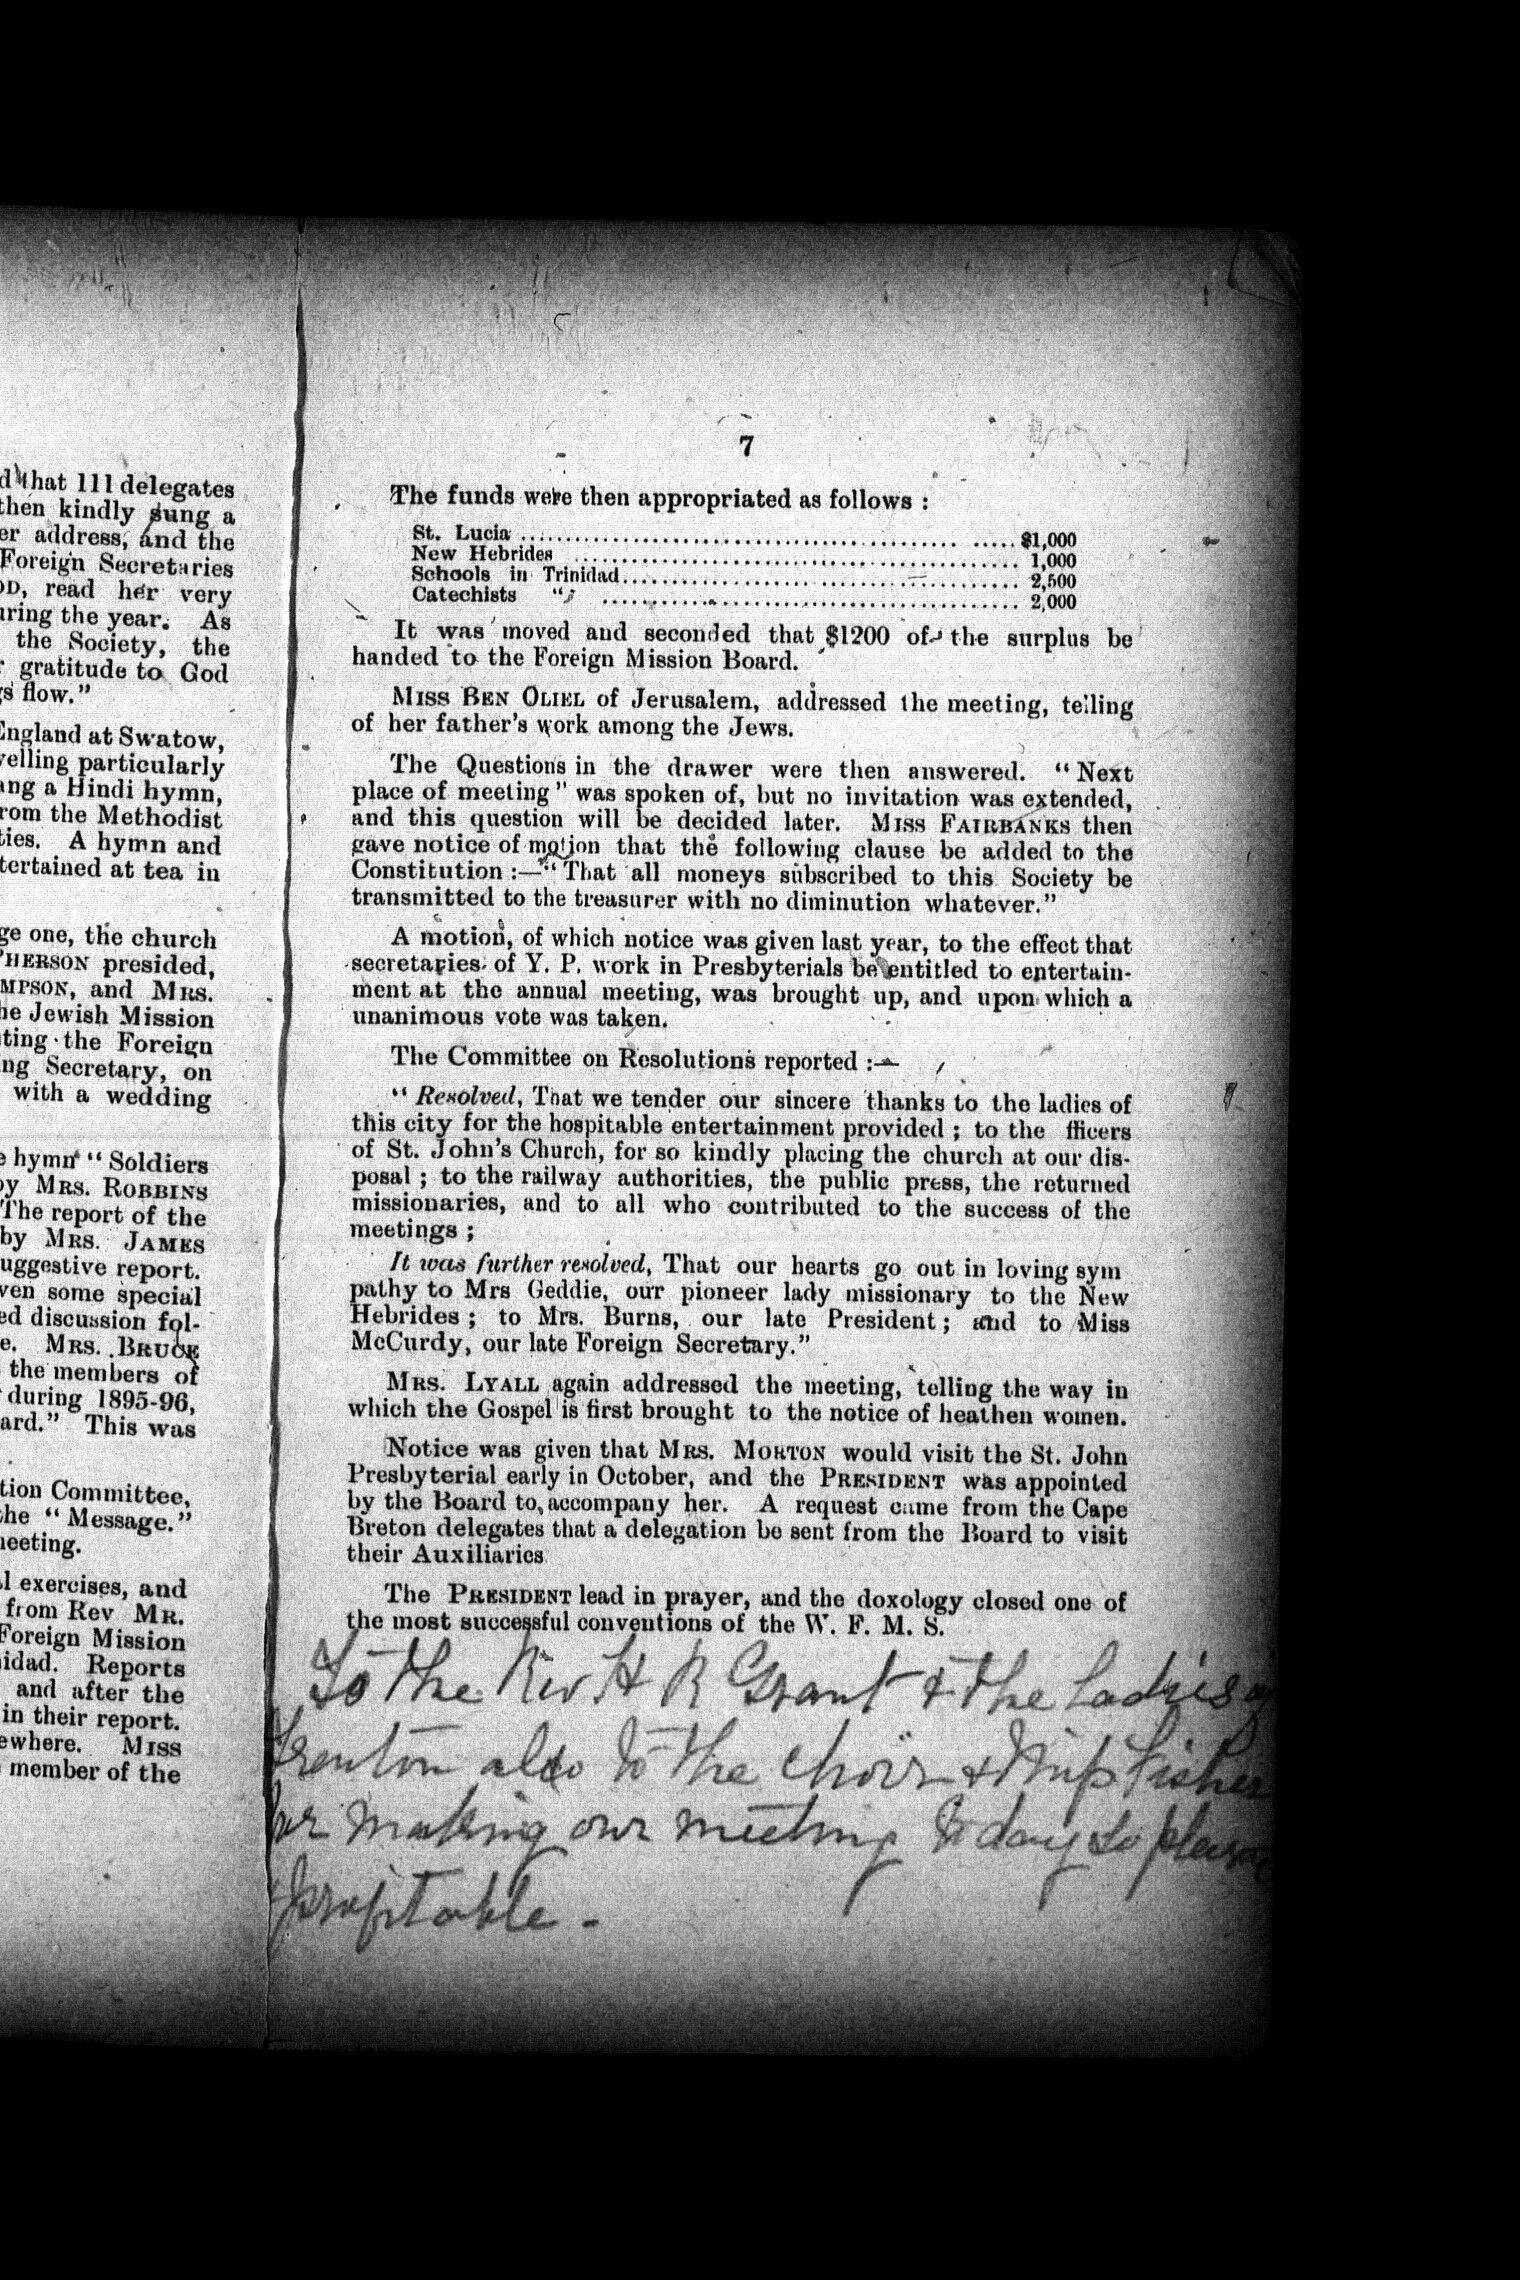 d that 111 delegates
then kindly sung a
er address, and the
Foreign Secretaries
OD, read her very
uring the year. As
the Society, the
gratitude to God
gs flow."
England at Swatow,
velling particularly
ang a Hindi hymn,
rom the Methodist
ties. A hymn and
tertained at tea in
ge one, the church
PHERSON presided,
MPSON, and MRS.
he Jewish Mission
ting the Foreign
ng Secretary, on
with a wedding
e hymn "Soldiers
by MRS. ROBBINS
The report of the
by MRS. JAMES
uggestive report.
ven some special
ed discussion fol-
e. MRS. BRUCE
the members of
during 1895-96,
ard." This was
tion Committee,
the "Message."
neeting.
l exercises, and
from Rev MR.
Foreign Mission
nidad. Reports
and after the
in their report.
ewhere. MISS
member of the
7
The funds were then appropriated as follows :
St. Lucia $1,000
New Hebrides 1,000
Schools in Trinidad 2,500
Catechists " 2,000
It was moved and seconded that $1200 of the surplus be
handed to the Foreign Mission Board.
MISS BEN OLIEL of Jerusalem, addressed the meeting, telling
of her father's work among the Jews.
The Questions in the drawer were then answered. "Next
place of meeting" was spoken of, but no invitation was extended,
and this question will be decided later. MISS FAIRBANKS then
gave notice of motion that the following clause be added to the
Constitution :—"That all moneys subscribed to this Society be
transmitted to the treasurer with no diminution whatever."
A motion, of which notice was given last year, to the effect that
secretaries of Y. P. work in Presbyterials be entitled to entertain-
ment at the annual meeting, was brought up, and upon which a
unanimous vote was taken.
The Committee on Resolutions reported :—
"Resolved, That we tender our sincere thanks to the ladies of
this city for the hospitable entertainment provided ; to the fficers
of St. John's Church, for so kindly placing the church at our dis-
posal ; to the railway authorities, the public press, the returned
missionaries, and to all who contributed to the success of the
meetings ;
It was further resolved, That our hearts go out in loving sym
pathy to Mrs Geddie, our pioneer lady missionary to the New
Hebrides ; to Mrs. Burns, our late President ; and to Miss
McCurdy, our late Foreign Secretary."
MRS. LYALL again addressed the meeting, telling the way in
which the Gospel is first brought to the notice of heathen women.
Notice was given that MRS. MORTON would visit the St. John
Presbyterial early in October, and the PRESIDENT was appointed
by the Board to accompany her. A request came from the Cape
Breton delegates that a delegation be sent from the Board to visit
their Auxiliaries
The PRESIDENT lead in prayer, and the doxology closed one of
the most successful conventions of the W. F. M. S.
To the Rev H R Grant & the Ladies of
Trenton also to the choir & Miss Fisher
for making our meeting to day so
profitable.